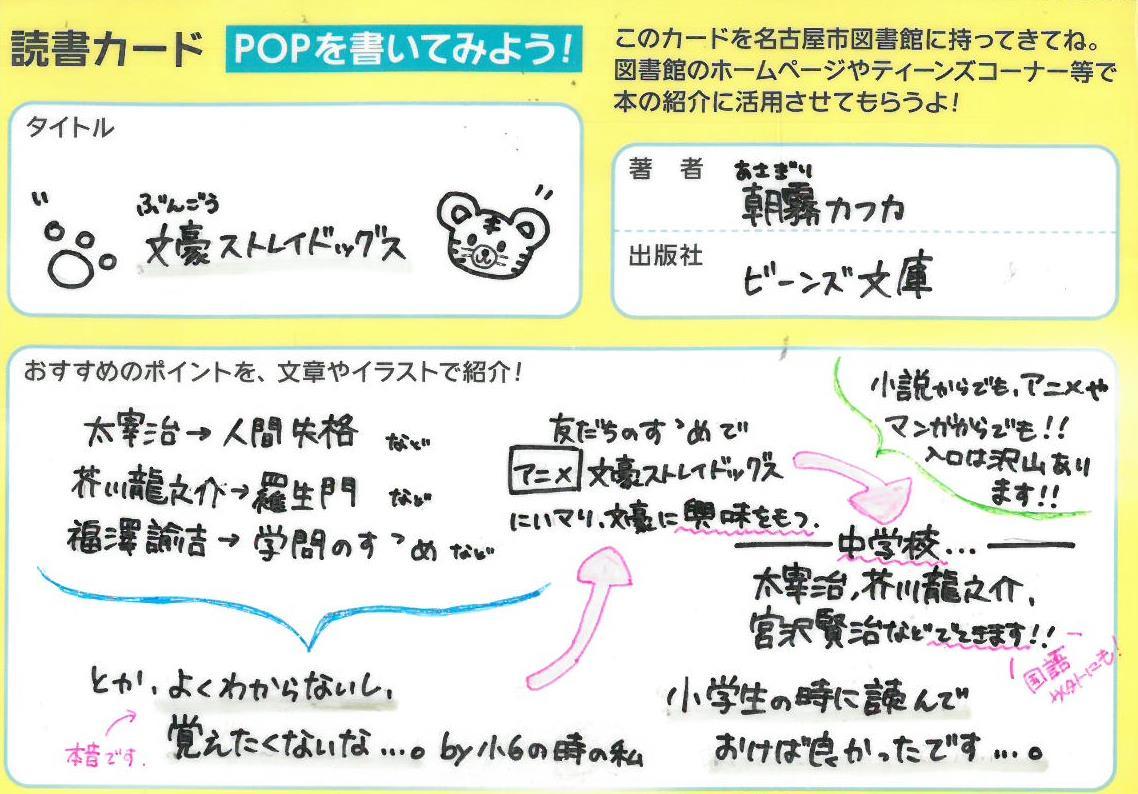 読書カード POPを書いてみよう!
このカードを名古屋市図書館に持ってきてね。
図書館のホームページやティーンズコーナー等で
本の紹介に活用させてもらうよ!
タイトル
ぶんごう
文豪ストレイドッグス
著 者
あさぎり
朝霧カフカ
出版社
ビーンズ文庫
おすすめのポイントを、文章やイラストで紹介!
太宰治→人間失格 など
芥川龍之介→羅生門 など
福澤諭吉→学問のすゝめ など
とか、よくわからないし、
覚えたくないな…。by小6の時の私
本音です.
友だちのすゝめで
アニメ 文豪ストレイドッグス
にハマり、文豪に興味をもつ.
小説からでも、アニメや
マンガからでも!!
入口は沢山あり
ます!!
中学校…
太宰治,芥川龍之介,
宮沢賢治などでてきます!!
国語
以外にも!
小学生の時に読んで
おけば良かったです…。